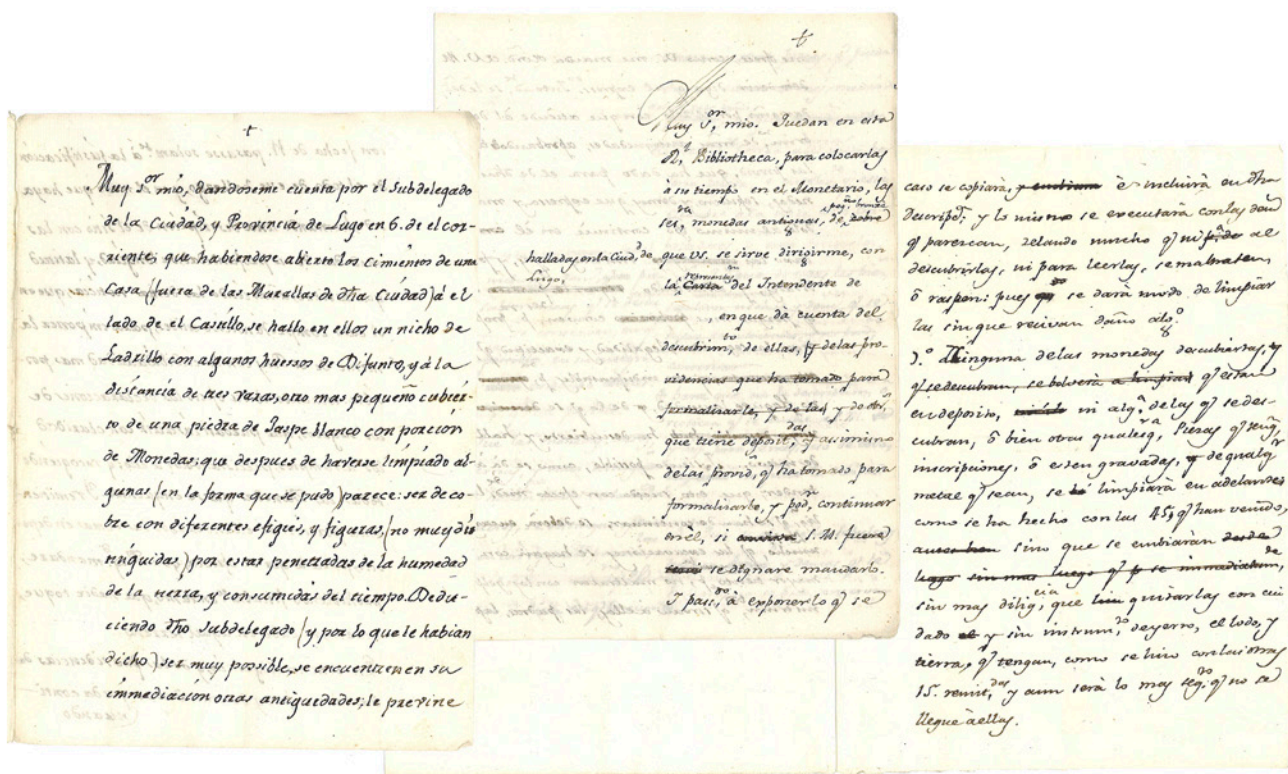 +
Muy S.or mio, dandoseme cuenta por el Subdelegado
de la Ciudad, y Provincia de Lugo en 6. de el cor-
riente; que habiendose abierto los cimientos de una
Casa (fuera de las Murallas de dha Ciudad) á el
lado de el Castillo, se hallo en ellos un nicho de
Ladrillo con algunos huessos de Difunto, y á la
distancia de tres varas, otro mas pequeño cubier-
to de una piedra de Jaspe blanco con porcion
de Monedas; que despues de haverse limpiado al-
gunas (en la forma que se pudo) parece: ser de co-
bre con diferentes efigies, y figuras, (no muy dis
tinguidas) por estar penetradas de la humedad
de la tierra, y consumidas del tiempo. Dedu-
ciendo dho Subdelegado (y por lo que le habian
dicho) ser muy possible, se encuentren en su
immediacion otras antiguedades; le previne
+
Muy S.or mio. Quedan en esta
R.l Bibliotheca, para colocarlas
à su tiempo en el Monetario, las
monedas antiguas, de cobre
halladas en la Ciud.d de
Lugo,
que VS. se sirve dirigirme, con
la Carta del Intendente de
, en que dà cuenta del
descubrim.to de ellas, y de las pro-
videncias que ha tomado para
formalisarle, y de las
que tiene deposit.das y assimismo
de las provid.s q ha tomado para
formalisarlo, y continuar
en èl, si S. M. fuera
se dignare mandarlo.
I passo à exponerlo q se
caso se copiarà, y embiara è incluirà en dha
Descripc.n; y lo mismo se executarà con las demas
q parescan, zelando mucho q ni al
descubrirlas, ni para leerlas, se maltraten,
ò raspen: pues se darà modo de limpiar
las sin que recivan daño alg.o
3.o Ninguna de las monedas descubiertas, y
q se descubran, se bolverà a limpiar q estan
en deposito, ni alg.a de las q se des-
cubran, ò bien otras qualesq.ra Piezas q teng.n
inscripciones, ò esten gravadas, y de qualq.r
metal q sean, se limpiarà en adelante
como se ha hecho con las 45, q han venido,
sino que se embiaràn desde
luego sin mas luego q se immediatam.te
sin mas dilig.cia que quitarlas con cui
dado y sin instrum.to de yerro, el lodo, y
tierra, q tengan, como se hizo con las otras
15. remit.das y aun serà lo mas seg.ro q no se
llegue à ellas.